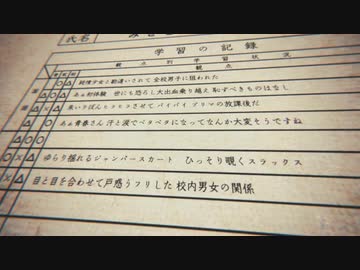 氏名
学習の記録
観点別学習状況
観点
純情少女と勘違いされて 全校男子に狙われた
あぁ初体験 世にも恐ろし大出血乗り越え 恥ずべきものはなし
青いリボンヒラヒラさせて バイバイ プリマの放課後だ
あぁ青春さん 汗と涙でベタベタになってなんか大変そうですね
ゆらり揺れるジャンパースカート ひっそり覗くスラックス
目と目を合わせて戸惑うフリした 校内男女の関係